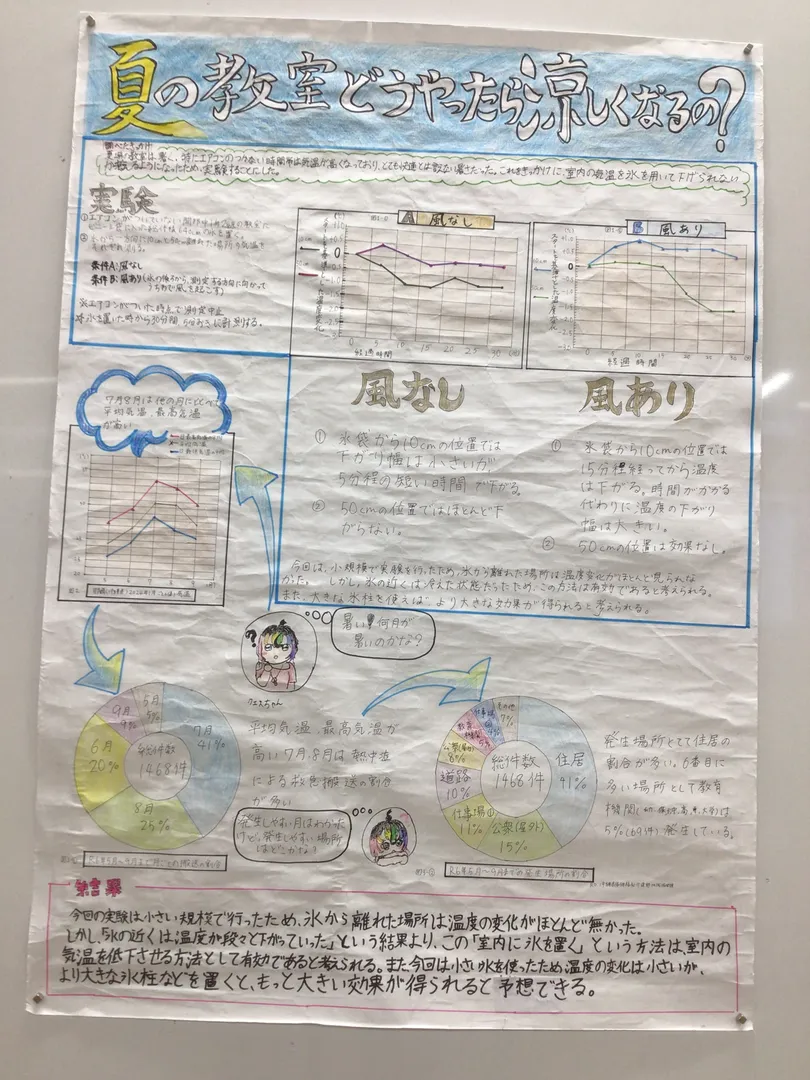 夏の教室どうやったら涼しくなるの?
調べたきっかけ
夏場の教室は暑く、特にエアコンのつかない時間帯は気温が高くなっており、とても快適とは言えない暑さだった。これをきっかけに、室内の気温を氷を用いて下げられない
ため、実験することにした。
実験
条件A:風なし
条件B:風あり(氷の後ろから、測定する方向に向かって
うちわで風を起こす)
※エアコンがついた時点で測定中止
氷を置いた時から30分間 5分おきに計測する。
A 風なし
経過時間
B 風あり
経過時間
7月8月は他の月にくらべて
平均気温、最高気温
が高い
風なし
① 氷袋から10cmの位置では
下がり幅は小さいが
5分程の短い時間で下がる。
② 50cmの位置ではほとんど下
がらない。
風あり
① 氷袋から10cmの位置では
15分程経ってから温度
は下がる。時間がかかる
代わりに温度の下がり
幅は大きい。
② 50cmの位置は効果なし。
今回は、小規模で実験を行ったため、氷から離れた場所は温度変化がほとんど見られな
かった。しかし、氷の近くは冷えた状態だったため、この方法は有効であると考えられる。
また、大きな氷柱を使えばより大きな効果が得られると考えられる。
暑い!何月が
暑いのかな?
クエスちゃん
総件数
1468件
7月
41%
8月
25%
6月
20%
9月
9%
5月
5%
R6年5月~9月まで月ごとの搬送の割合
平均気温、最高気温が
高い7月、8月は熱中症
による救急搬送の割合
が多い
発生しやすい月はわかった
けど、発生しやすい場所
はどこかな?
総件数
1468件
住居
41%
公衆(屋外)
15%
仕事場①
11%
道路
10%
公衆(屋内)
8%
その他
7%
R6年5月~9月までの発生場所の割合
発生場所として住居の
割合が多い。6番目に
多い場所として教育
機関
5%(69件)発生している。
結果
今回の実験は小さい規模で行ったため、氷から離れた場所は温度の変化がほとんど無かった。
しかし、「氷の近くは温度が段々と下がっていった」という結果より、この「室内に氷を置く」という方法は、室内の
気温を低下させる方法として有効であると考えられる。また今回は小さい氷を使ったため、温度の変化は小さいが、
より大きな氷柱などを置くと、もっと大きい効果が得られると予想できる。